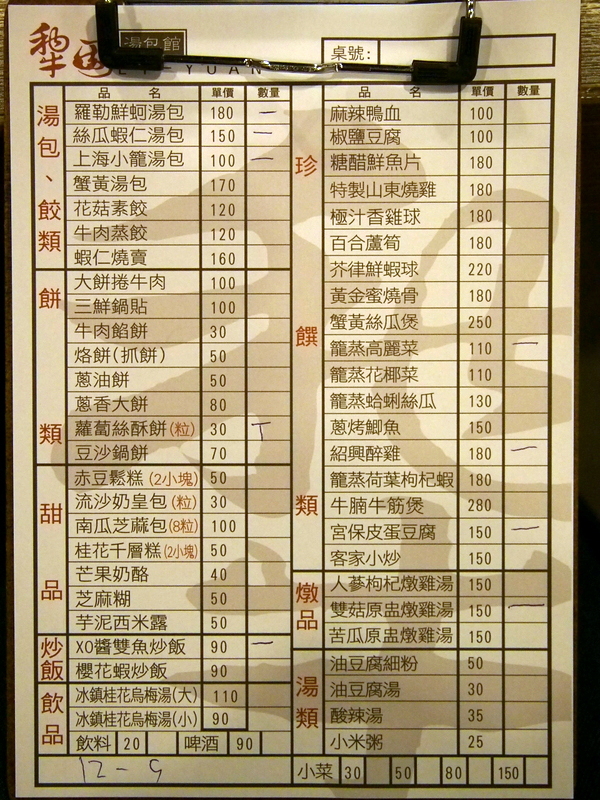 犂園 湯包館
LI-YUAN
桌號:
品 名 單價 數量
湯包、餃類
羅勒鮮蚵湯包 180 一
絲瓜蝦仁湯包 150 一
上海小籠湯包 100 一
蟹黃湯包 170
花菇素餃 120
牛肉蒸餃 120
蝦仁燒賣 160
餅類
大餅捲牛肉 100
三鮮鍋貼 100
牛肉餡餅 30
烙餅(抓餅) 50
蔥油餅 50
蔥香大餅 80
蘿蔔絲酥餅(粒) 30 T
豆沙鍋餅 70
甜品
赤豆鬆糕(2小塊) 50
流沙奶皇包(粒) 30
南瓜芝蔴包(8粒) 100
桂花千層糕(2小塊) 50
芒果奶酪 40
芝麻糊 50
芋泥西米露 50
炒飯
XO醬雙魚炒飯 90 一
櫻花蝦炒飯 90
飲品
冰鎮桂花烏梅湯(大) 110
冰鎮桂花烏梅湯(小) 90
飲料 20 啤酒 90
12-9
品 名 單價 數量
珍饌類
麻辣鴨血 100
椒鹽豆腐 100
糖醋鮮魚片 180
特製山東燒雞 180
極汁香雞球 180
百合蘆筍 180
芥律鮮蝦球 220
黃金蜜燒骨 180
蟹黃絲瓜煲 250
籠蒸高麗菜 110 一
籠蒸花椰菜 110
籠蒸蛤蜊絲瓜 130
蔥烤鯽魚 150
紹興醉雞 180 一
籠蒸荷葉枸杞蝦 180
牛腩牛筋煲 280
宮保皮蛋豆腐 150 一
客家小炒 150
燉品
人蔘枸杞燉雞湯 150
雙菇原盅燉雞湯 150 一
苦瓜原盅燉雞湯 150
湯類
油豆腐細粉 50
油豆腐湯 30
酸辣湯 35
小米粥 25
小菜 30 50 80 150